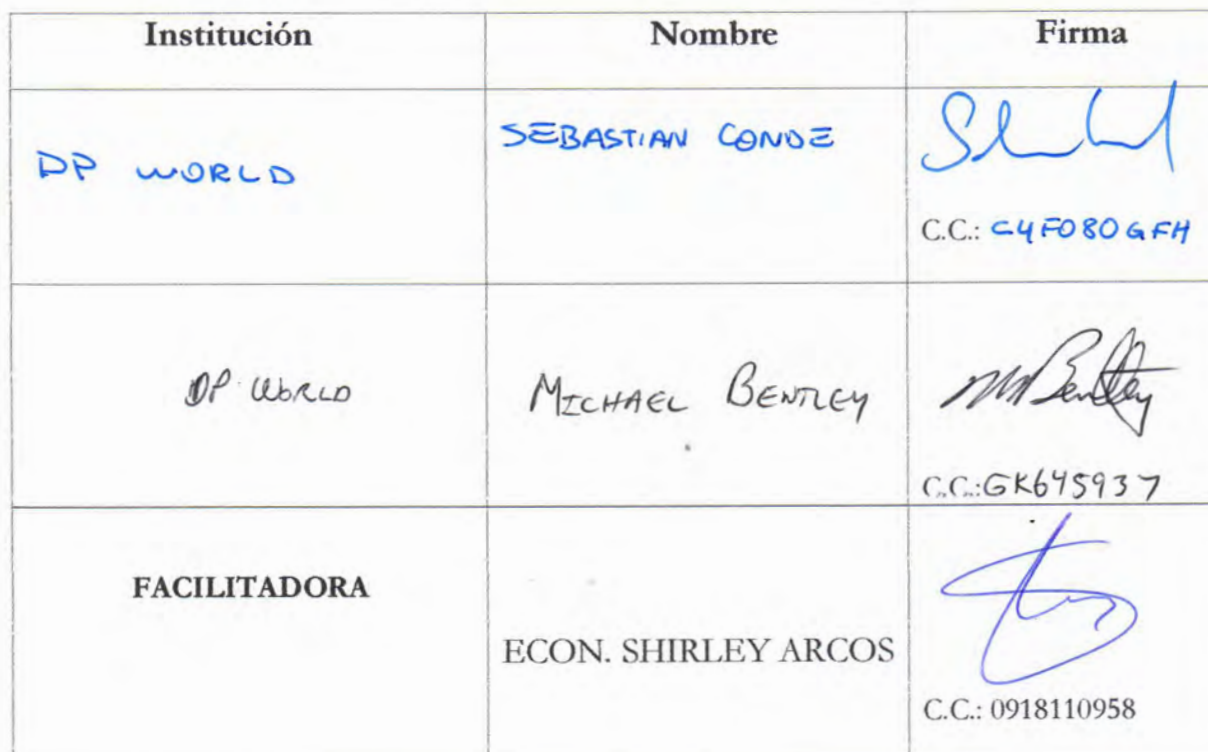 Institución Nombre Firma
DP WORLD SEBASTIAN CONDE
C.C.: C4F080GFH
DP WORLD MICHAEL BENTLEY MBentley
C.C.: GK645937
FACILITADORA
ECON. SHIRLEY ARCOS
C.C.: 0918110958